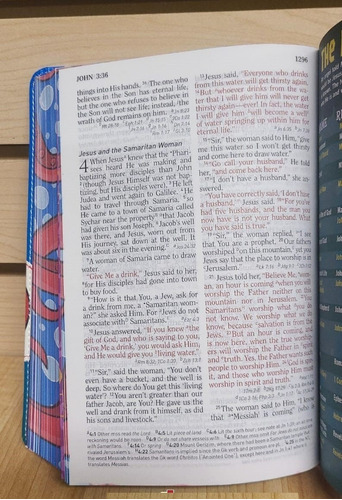 JOHN 3:36
1296
things into His hands. 36 The one who
believes in the Son has eternal life,
but the one who refuses to believe in
the Son will not see life; instead, the
wrath of God remains on him.
Jesus and the Samaritan Woman
4 When Jesus knew that the Phari-
sees heard He was making and
baptizing more disciples than John
2 (though Jesus Himself was not bap-
tizing, but His disciples were), 3 He left
Judea and went again to Galilee. 4 He
had to travel through Samaria, 5 so
He came to a town of Samaria called
Sychar near the property that Jacob
had given his son Joseph. 6 Jacob's well
was there, and Jesus, worn out from
His journey, sat down at the well. It
was about six in the evening.
7 A woman of Samaria came to draw
water.
"Give Me a drink," Jesus said to her,
8 for His disciples had gone into town
to buy food.
9 "How is it that You, a Jew, ask for
a drink from me, a Samaritan wom-
an?" she asked Him. For Jews do not
associate with Samaritans.
10 Jesus answered, "If you knew the
gift of God, and who is saying to you,
'Give Me a drink,' you would ask Him,
and He would give you living water."
11 "Sir," said the woman, "You don't
even have a bucket, and the well is
deep. So where do You get this 'living
water'? 12 You aren't greater than our
father Jacob, are You? He gave us the
well and drank from it himself, as did
his sons and livestock."
13 Jesus said, "Everyone who drinks
from this water will get thirsty again.
14 But whoever drinks from the wa-
ter that I will give him will never get
thirsty again—ever! In fact, the water
I will give him will become a well
of water springing up within him for
eternal life."
15 "Sir," the woman said to Him, "give
me this water so I won't get thirsty
and come here to draw water."
16 "Go call your husband," He told
her, "and come back here."
17 "I don't have a husband," she an-
swered.
"You have correctly said, 'I don't have
a husband,'" Jesus said. 18 "For you've
had five husbands, and the man you
now have is not your husband. What
you have said is true."
19 "Sir," the woman replied, "I see
that You are a prophet. 20 Our fathers
worshiped on this mountain, yet you
Jews say that the place to worship is
in Jerusalem."
21 Jesus told her, "Believe Me, wom-
an, an hour is coming when you will
worship the Father neither on this
mountain nor in Jerusalem. 22 You
Samaritans worship what you do
not know. We worship what we do
know, because salvation is from the
Jews. 23 But an hour is coming, and
is now here, when the true worship-
ers will worship the Father in spirit
and truth. Yes, the Father wants such
people to worship Him. 24 God is spir-
it, and those who worship Him must
worship in spirit and truth."
25 The woman said to Him, "I know
that Messiah is coming" (who is